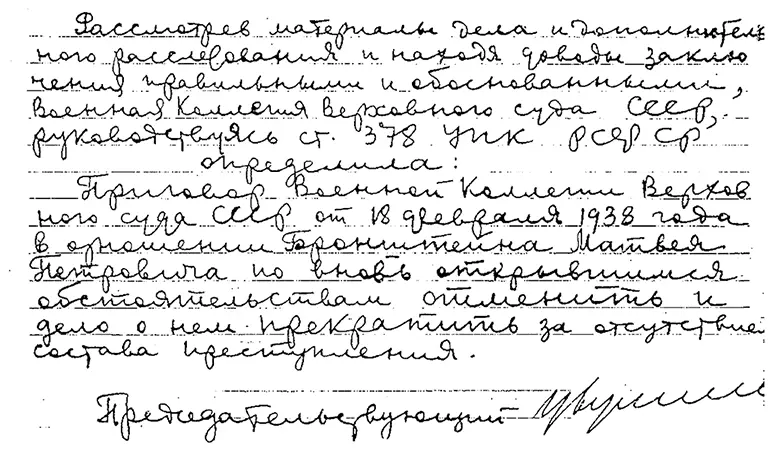 Рассмотрев материалы дела и дополнитель
ного расследования и находя доводы заклю
чения правильными и обоснованными,
Военная Коллегия Верховного суда СССР,
руководствуясь ст. 378 УПК РСФСР
определила:
Приговор Военной Коллегии Верхов
ного суда СССР от 18 февраля 1938 года
в отношении Бронштейна Матвея
Петровича по вновь открывшимся
обстоятельствам отменить и
дело о нем прекратить за отсутствием
состава преступления.
Председательствующий